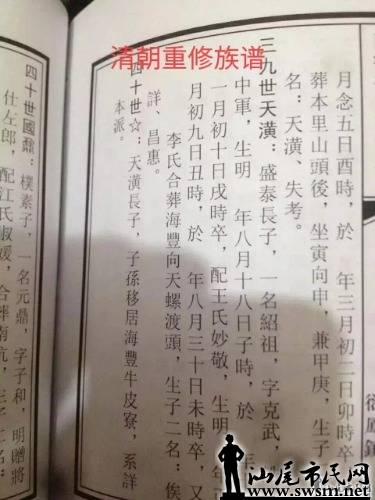 清朝重修族谱
月念五日酉時，於　年三月初二日卯時卒
葬本里山頭後，坐寅向申，兼甲庚，生子
名：天潢、失考。
三九世天潢：盛泰長子，一名紹祖，字克武，
中軍，生明　年八月十八日子時，於　年
一月初十日戌時卒，配王氏妙敬，生明　年
月初九日丑時，於　年八月三十日未時卒，又
李氏合葬海豐向天螺渡頭，生子二名：俟
詳、昌惠。
四十世☆：天潢長子，子孫移居海豐牛皮寮，系詳
本派。
四十世國鼐：樸素子，一名元鼎，字子和，明贈將
仕左郎，配江氏淑媛，合葬南坑，生子二名：
汕尾市民网
www.swsm.net